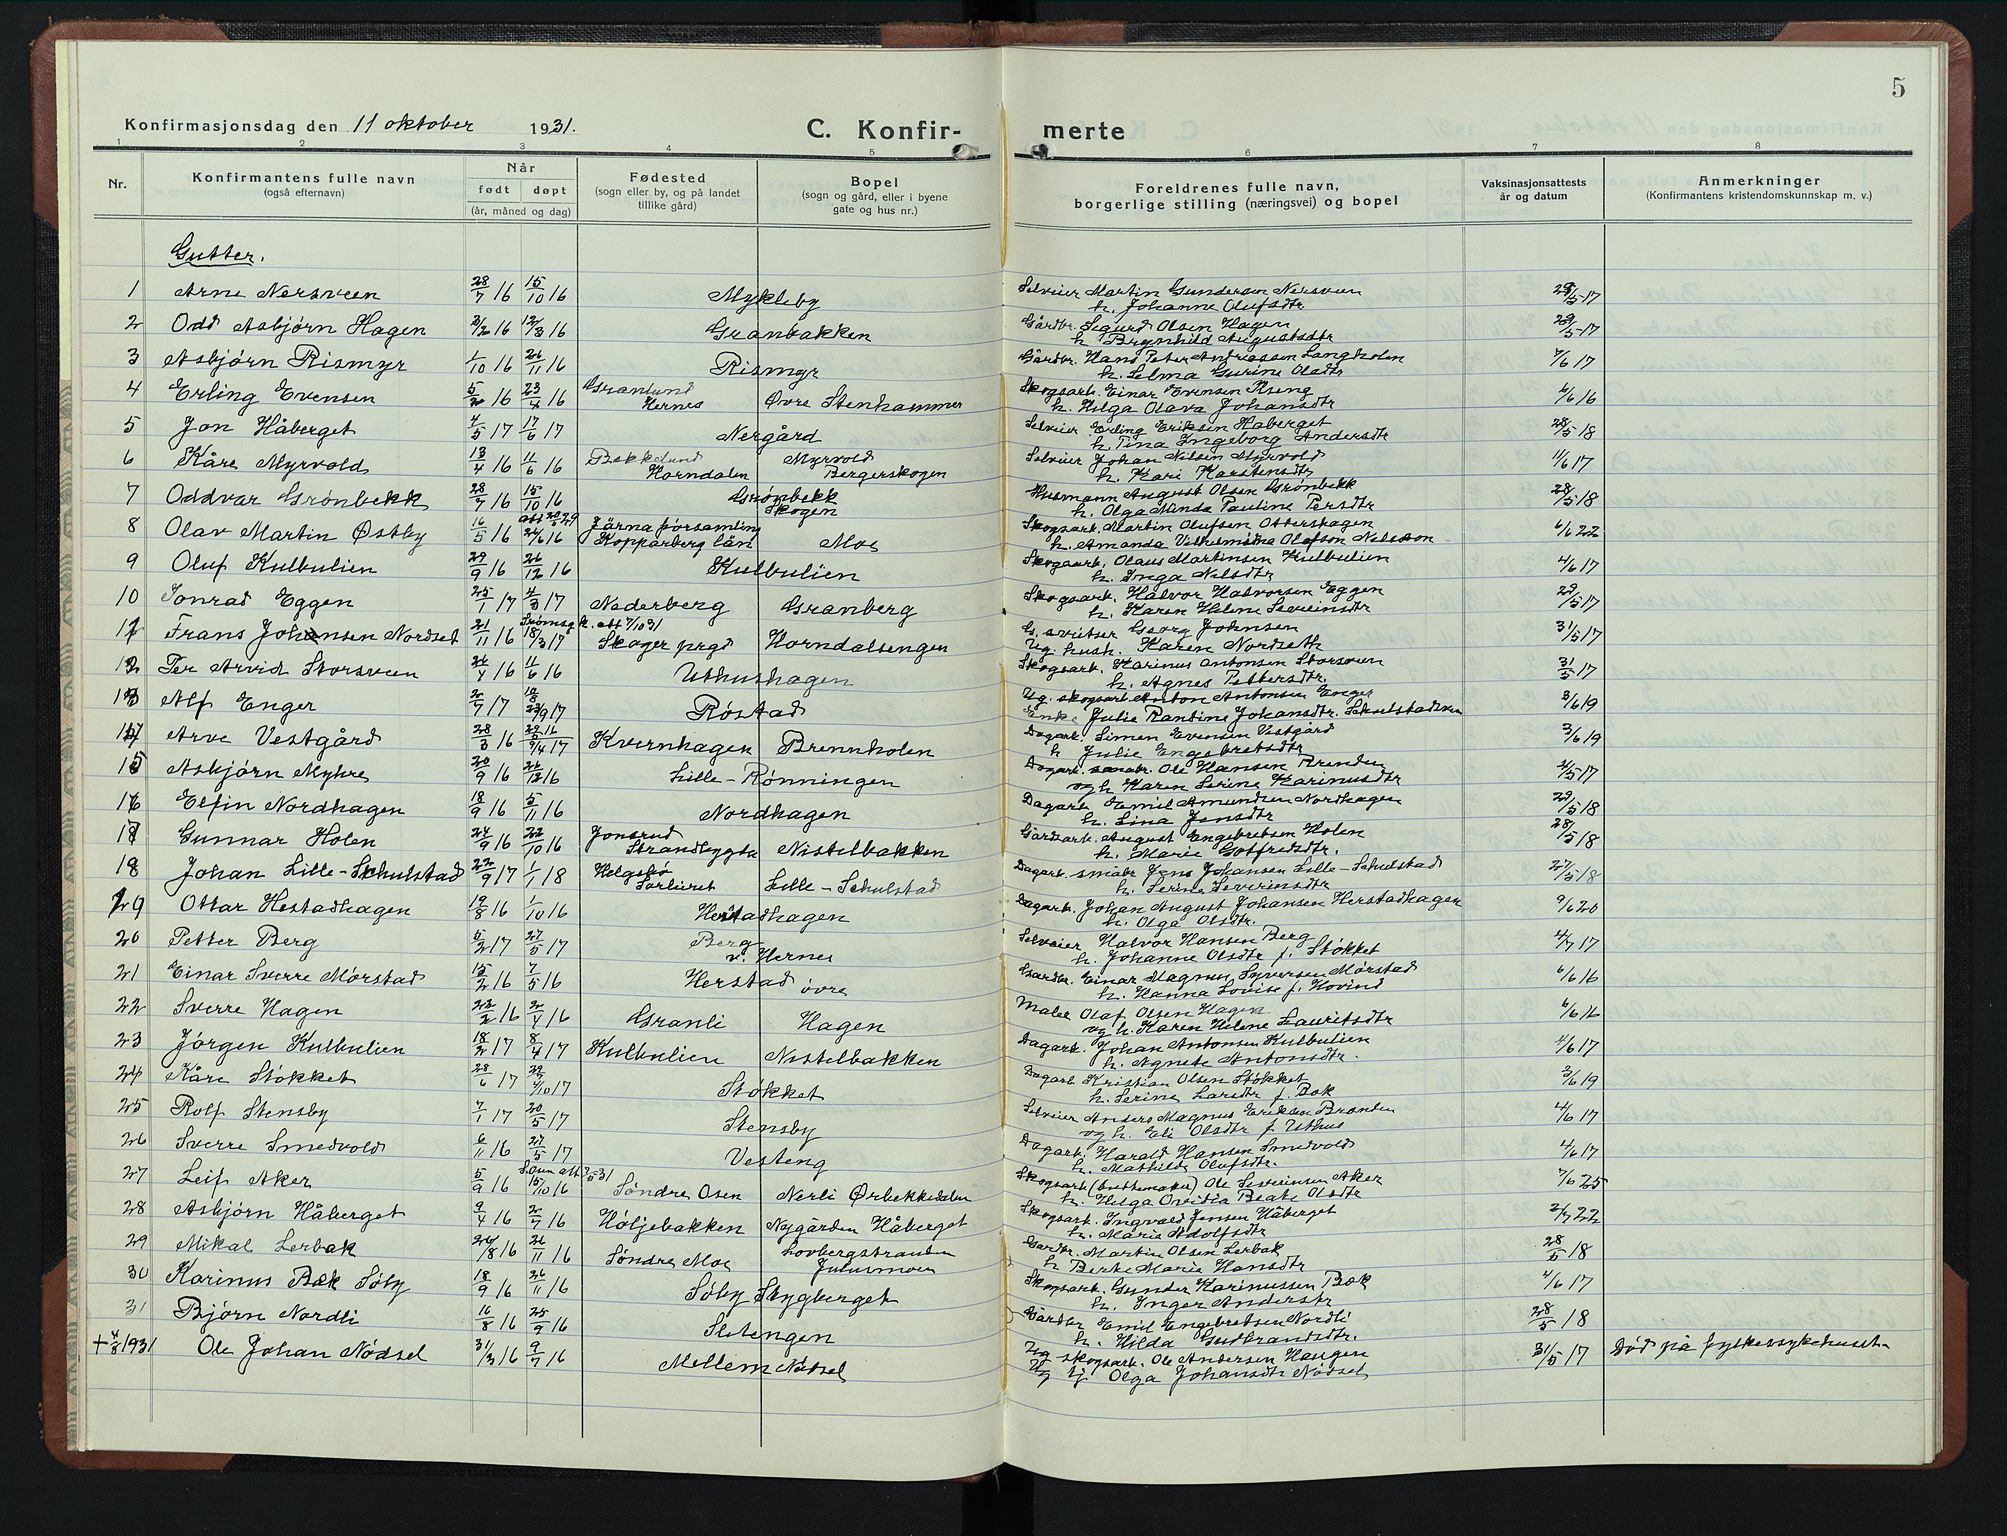 5
Konfirmasjonsdag den 11 oktober 1931.
C. Konfir- merte
1 2 3 4 5 6 7 8
Nr. Konfirmantens fulle navn (også efternavn) Når født døpt (år, måned og dag) Fødested (sogn eller by, og på landet tillike gård) Bopel (sogn og gård, eller i byene gate og hus nr.) Foreldrenes fulle navn, borgerlige stilling (næringsvei) og bopel Vaksinasjonsattests år og datum Anmerkninger (Konfirmantens kristendomskunnskap m. v.)
Gutter.
1 Arne Nersveen 28/7 16 15/10 16 Mykleby Selveier Martin Gundersen Nersveen 29/5-17
h. Johanne Olufsdtr
2 Odd Asbjørn Hagen 3/2 16 12/3 16 Granbakken Gårdbr. Sigurd Olsen Hagen 29/5-17
h Brynhild Augustsdtr
3 Asbjørn Rismyr 1/10 16 26/11 16 Rismyr Gårdbr. Hans Peter Andreassen Langholen 7/6 17
h. Selma Gurine Olsdtr
4 Erling Evensen 5/2 16 23/4 16 Granlund Hernes Øvre Stenhammer Skogsarb. Einar Evensen Ilseng 6/6 16
h. Helga Olava Johansdtr
5 Jon Håberget 4/5 17 17/6 17 Nergård Selveier Erling Eriksen Håberget 28/5 18
h. Tina Ingeborg Andersdtr
6 Kåre Myrvold 13/4 16 11/6 16 Bekkelund Horndalen Myrvold Bergerskogen Selveier Johan Nilsen Myrvold 11/6 17
h. Kari Karstensdtr
7 Oddvar Grønbekk 28/7 16 15/10 16 Grønbekk Skogen Husmann August Olsen Grønbekk 28/5 18
h. Olga Minda Pauline Persdtr
8 Olav Martin Østby 16/5 16 att 20/6 29 24/6 16 Järna församling Kopparberg län Moe Skogsarb. Martin Olufsen Ottershagen 6/6 22
h. Amanda Vilhelmina Olofson Nelsson
9 Oluf Kulbulien 29/9 16 26/12 16 Kulbulien Skogsarb. Olaus Martinsen Kulbulien 4/6 17
h. Inga Nilsdtr
10 Konrad Eggen 25/1 17 4/3 17 Nederberg Granberg Skogsark. Halvor Halvorsen Eggen 29/5 17
h. Karen Helene Severinsdtr
11 Frans Johansen Nordset 21/11 16 Strømsg k. att 7/10 31 18/3 17 Skoger prgd Horndalsengen G. svitser Georg Johnsen 31/5 17
Ug. hush. Karen Nordseth
12 Per Arvid Storsveen 24/4 16 11/6 16 Uthushagen Skogsark. Karinus Antonsen Storsveen 31/5 17
h. Agnes Pettersdtr.
13 Alf Enger 2/7 17 12/8 23/9 17 Røstad Ug. skogsarb. Anton Antonsen Enger 3/6 19
Enke Julie Randine Johansdtr. Schulstadsveen
14 Arve Vestgård 28/3 16 9/4 17 Kvernhagen Brennholen Dagark. Simen Evensen Vestgård 3/6 19
h Julie Engebretsdtr
15 Asbjørn Myhre 20/9 16 26/12 16 Lille-Rønningen Dagark. smabr. Ole Hansen Brenden 4/5 17
og h Karen Serine Karinusdtr
16 Elfin Nordhagen 18/9 16 5/11 16 Nordhagen Dagark. Emil Amundsen Nordhagen 29/5 18
h. Lina Jensdtr
17 Gunnar Holen 24/9 16 22/10 16 Jonsrud Strandbygda Nistelbakken Gårdsark. August Engebretsen Holen 28/5 18
h. Marie Gotfredsdtr.
18 Johan Lille-Schulstad 22/9 17 1/1 18 Helgebø Sørleiret Lille-Schulstad Dagark. småbr Jens Johansen Lille-Schulstad 27/5 18
h. Serine Severinsdtr
19 Ottar Hestadhagen 19/8 16 1/10 16 Herstadhagen Dagark. Johan August Johansen Herstadhagen 9/6 20
h. Olga Olsdtr.
20 Petter Berg 5/2 17 27/5 17 Berg v. Hernes Selveier Halvor Hansen Berg 4/7 17
h. Johanne Olsdtr f. Støkket
21 Einar Sverre Mørstad 15/2 16 7/5 16 Herstad øvre Gårdbr. Einar Magnus Syversen Mørstad 6/6 16
h. Hanna Lovise f. Hovind
22 Sverre Hagen 22/2 16 2/4 16 Granli Hagen Maler Olaf Olsen Hagen 6/6 16
og h. Karen Helene Lauritsdtr
23 Jørgen Kulbulien 18/2 17 8/4 17 Kulbulien Nistelbakken Dagark. Johan Antonsen Kulbulien 4/6 17
h. Agnete Antonsdtr.
24 Kåre Støkket 28/6 17 4/10 17 Støkket Dagark Kristian Olsen Støkket 3/6 19
h. Serine Larsdtr f. Bæk
25 Rolf Stensby 7/1 17 20/5 17 Stensby Selveier Anders Magnus Eriksen Brenden 4/6 17
og h. Eli Olsdtr f. Uthus
26 Sverre Smedvold 6/11 16 27/5 17 Vesteng Dagark. Harald Hansen Smedvold 4/6 17
h. Mathilde Olufsdtr.
27 Leif Aker 5/9 16 S. Osen att 3/5-31 15/10 16 Søndre Osen Nerli Ørbekkedalen Skogsark (bøttemaker) Ole Severinsen Aker 7/6 25
h. Helga Ovidia Beate Olsdtr
28 Asbjørn Håberget 9/4 16 2/7 16 Høljebakken Nygården Håberget Skogsark. Ingvald Jensen Håberget 2/7 22
h. Marie Adolfsdtr
29 Mikal Lerbak 24/8 16 26/11 16 Søndre Moe Lovbergstranden Julusmoen Gårdbr. Martin Olsen Lerbak 28/5 18
h Berte Marie Hansdtr
30 Karinus Bæk Søby 18/9 16 26/11 16 Søby Stygberget Skogsark. Gunder Karinussen Bæk 4/6 17
h. Inger Andersdtr
31 Bjørn Nordli 16/8 16 25/9 16 Sletengen Gårdbr Emil Engebretsen Nordli 28/5 18
h. Hilda Gudbrandsdtr.
+ 4/8 1931 Ole Johan Nødsel 31/3 16 9/7 16 Mellem Nødsel Ug skogsark. Ole Andersen Haugen 31/5 17 Død på fylkessykehuset.
Ug tj. Olga Johansdtr Nødsel